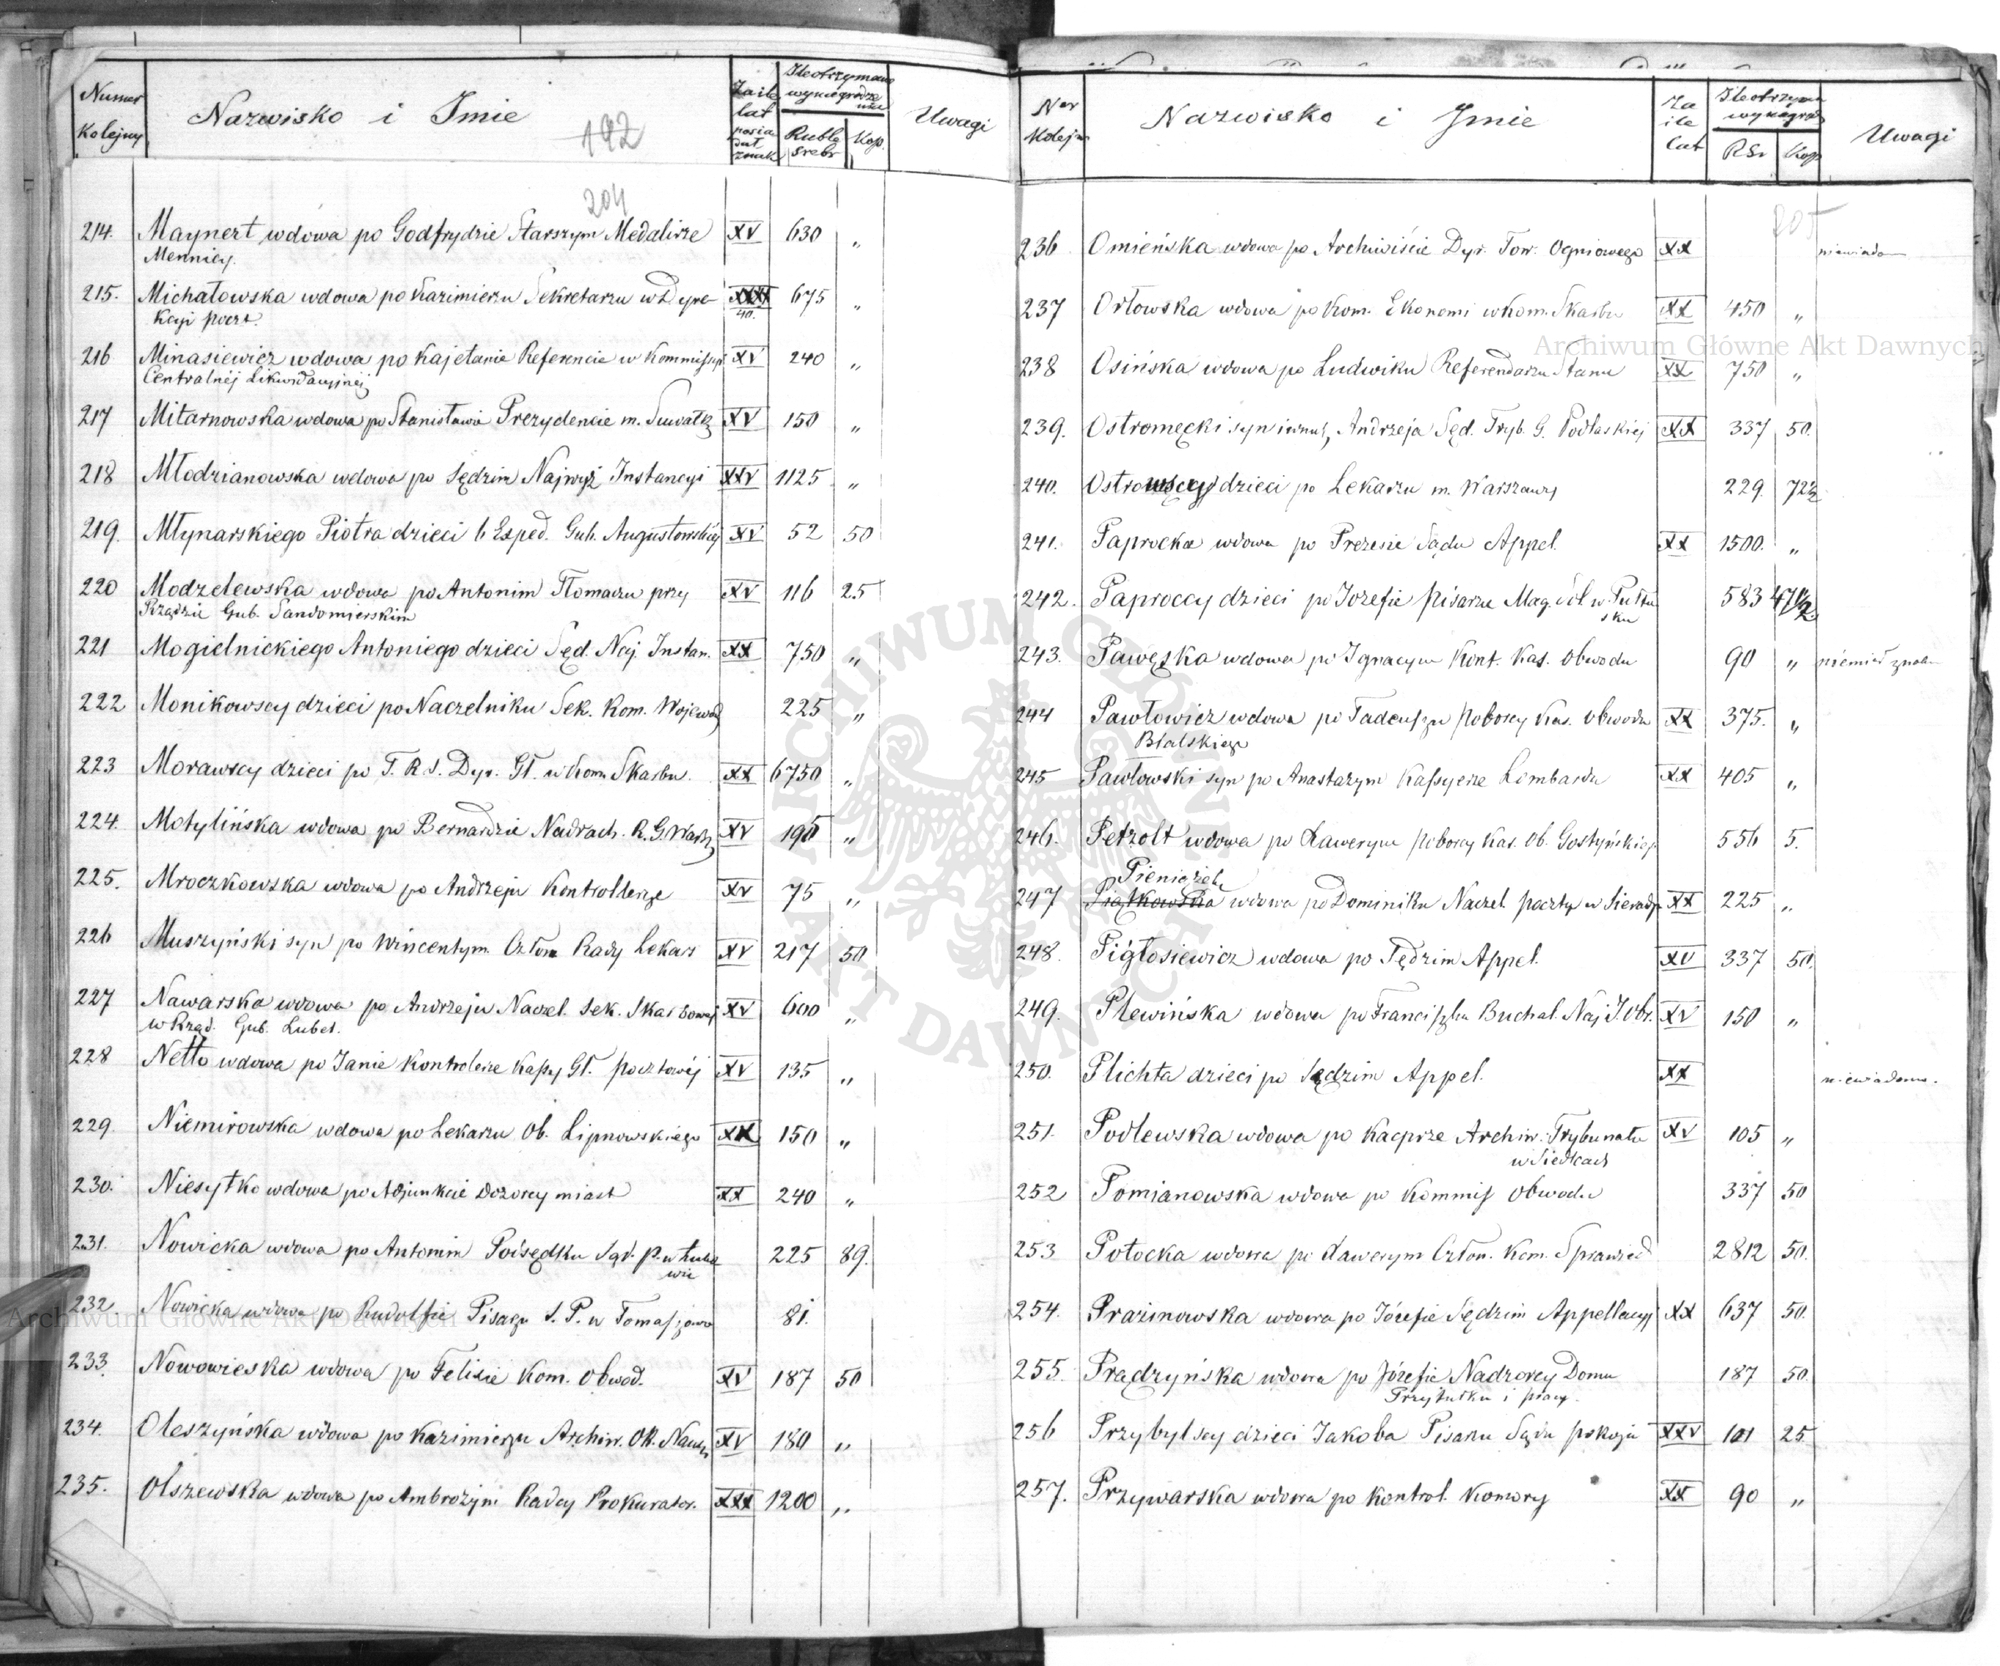 Numer Kolejny
Nazwisko i Imie
Za ile lat posiadał znak
Ile otrzymano wynagrodzenia
Rubli srebr
Kop.
Uwagi
192
204
214. Maynert wdowa po Godfrydzie Starszym Medalirze XV 630 „
Mennicy.
215. Michałowska wdowa po Kazimierzu Sekretarzu w Dyre- XXXX 675 „
kcyi poczt. 40.
216 Minasiewicz wdowa po Kajetanie Referencie w Kommissyi XV 240 „
Centralnéj Likwidacyjnéj
217 Mitarnowska wdowa po Stanisławie Prezydencie m. Suwałk XV 150 „
218 Młodzianowska wdowa po Sędzim Najwyż Instancyi XXV 1125 „
219. Młynarskiego Piotra dzieci b Exped. Gub. Augustowskiéj XV 52 50
220 Modzelewska wdowa po Antonim Tłomaczu przy XV 116 25
Rządzie Gub. Sandomierskim
221 Mogielnickiego Antoniego dzieci Sęd. Naj. Instan. XX 750 „
222 Monikowscy dzieci po Naczelniku Sek. Kom. Wojewód 225 „
223 Morawscy dzieci po T. R. S. Dyr. Gł. w Kom Skarbu. XX 6750 „
224. Motylińska wdowa po Bernardzie Nadrach. R. G. Warsz XV 195 „
225. Mroczkowska wdowa po Andrzeju Kontrollerze XV 75 „
226 Muszyński syn po Wincentym Człon Rady Lekars XV 217 50
227 Nawarska wdowa po Andrzeju Naczel. Sek. Skarbowej XV 600 „
w Rząd. Gub. Lubel.
228 Netto wdowa po Janie Kontrolerze Kassy Gł. pocztowéj XV 135 „
229. Niemirowska wdowa po Lekarzu Ob. Lipnowskiego XX 150 „
230. Niesytko wdowa po Adjunkcie Dozorcy miast XX 240 „
231. Nowicka wdowa po Antonim Podsędku Sąd. P. w Łuko 225 89.
wie
232. Nowicka wdowa po Rudolfie Pisarzu S. P. w Tomaszowie 81.
233. Nowowieska wdowa po Felixie Kom. Obwod. XV 187 50
234. Oleszyńska wdowa po Kazimierzu Archiw. Ok. Nauk XV 180 „
235. Olszewska wdowa po Ambrożym Radcy Prokurator. XXX 1200 „
Ner Kolejn
Nazwisko i Imie
Za ile lat
Ile otrzym wynagrod
RSr
Kop
Uwagi
205
236 Omieńska wdowa po Archiwiście Dyr. Tow. Ogniowego XX niewiadom
237 Orłowska wdowa po Kom. Ekonomi w Kom. Skarbu XX 450 „
238 Osińska wdowa po Ludwiku Referendarzu Stanu XX 750 „
239. Ostromęcki syn Andrzeja Sęd. Tryb. G. Podlaskiej XX 337 50.
240. dzieci po Lekarzu m. Warszawy 229 72½
241. Paprocka wdowa po Prezesie Sądu Appel. XX 1500. „
242. Paproccy dzieci po Jozefie Pisarzu Mag. Sol w Pułtu 583 47½
sku
243. Pawęska wdowa po Ignacym Kont. Kas. Obwodu 90 „ niémiał znaku
244 Pawłowicz wdowa po Tadeuszu Poborcy Kas. Obwodu XX 375. „
Bialskiego
245 Pawłowski syn po Anastazym Kassyerze Lombardu XX 405 „
246. Petzolt wdowa po Xawerym Poborcy Kas. Ob. Gostyńskiego 556 5.
Pieniążek
247 Piątkowska wdowa po Dominiku Naczel. poczty w Sieradz XX 225 „
248. Pigłosiewicz wdowa po Sędzim Appel. XV 337 50.
249. Plewińska wdowa po Franciszku Buchal. Naj I. Obr. XV 150 „
250. Plichta dzieci po Sędzim Appel. XX niewiadomo.
251. Podlewska wdowa po Kacprze Archiw. Trybunału XV 105 „
w Siedlcach
252 Pomianowska wdowa po Kommiss Obwodu 337 50
253 Potocka wdowa po Xawerym Człon. Kom. Sprawied 2812 50.
254. Prażmowska wdowa po Józefie Sędzim Appellacyj XX 637 50.
255. Prądzyńska wdowa po Józefie Nadzorcy Domu 187 50.
Przytułku i pracy.
256 Przybylscy dzieci Jakóba Pisarza Sądu pokoju XXV 101 25
257. Przywarska wdowa po Kontrol. Komory XX 90 „
Archiwum Główne Akt Dawnych
Archiwum Główne Akt Dawnych
ARCHIWUM GŁÓWNE AKT DAWNYCH